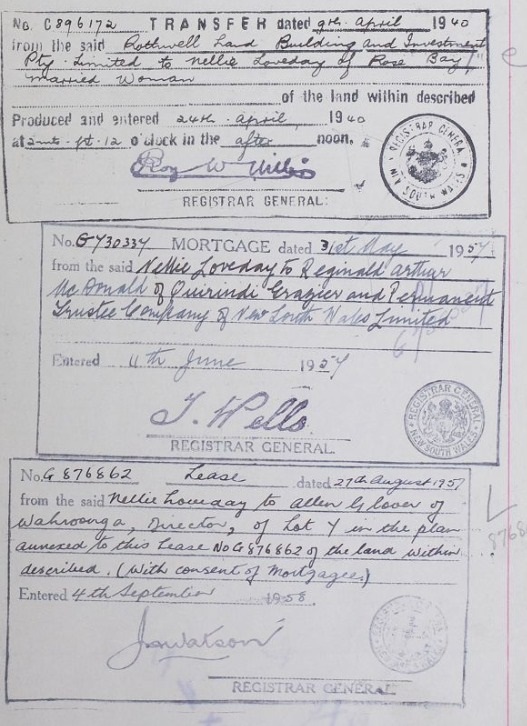 No. C396172 TRANSFER dated 9th April 1940
from the said Rothwell Land Building and Investment
Pty. Limited to Nellie Loveday of Rose Bay
married Woman
of the land within described
Produced and entered 24th April 1940
at 2 mts. pt. 12 o'clock in the after noon,
Roy W Willis
REGISTRAR GENERAL:
REGISTRAR GENERAL
NEW SOUTH WALES
No. G730337 MORTGAGE dated 31st May 1957
from the said Nellie Loveday to Reginald Arthur
McDonald of Quirindi Grazier and Permanent
Trustee Company of New South Wales Limited
Entered 11th June 1957
T. Wells
REGISTRAR GENERAL.
REGISTRAR GENERAL
NEW SOUTH WALES
No. G 876862 Lease dated 27th August 1957
from the said Nellie Loveday to Allen Glover of
Wahroonga, Director, of Lot Y in the plan
annexed to this Lease No G876862 of the land within
described. (With consent of Mortgagee)
Entered 4th September 1958
Jswatson
REGISTRAR GENERAL
8768